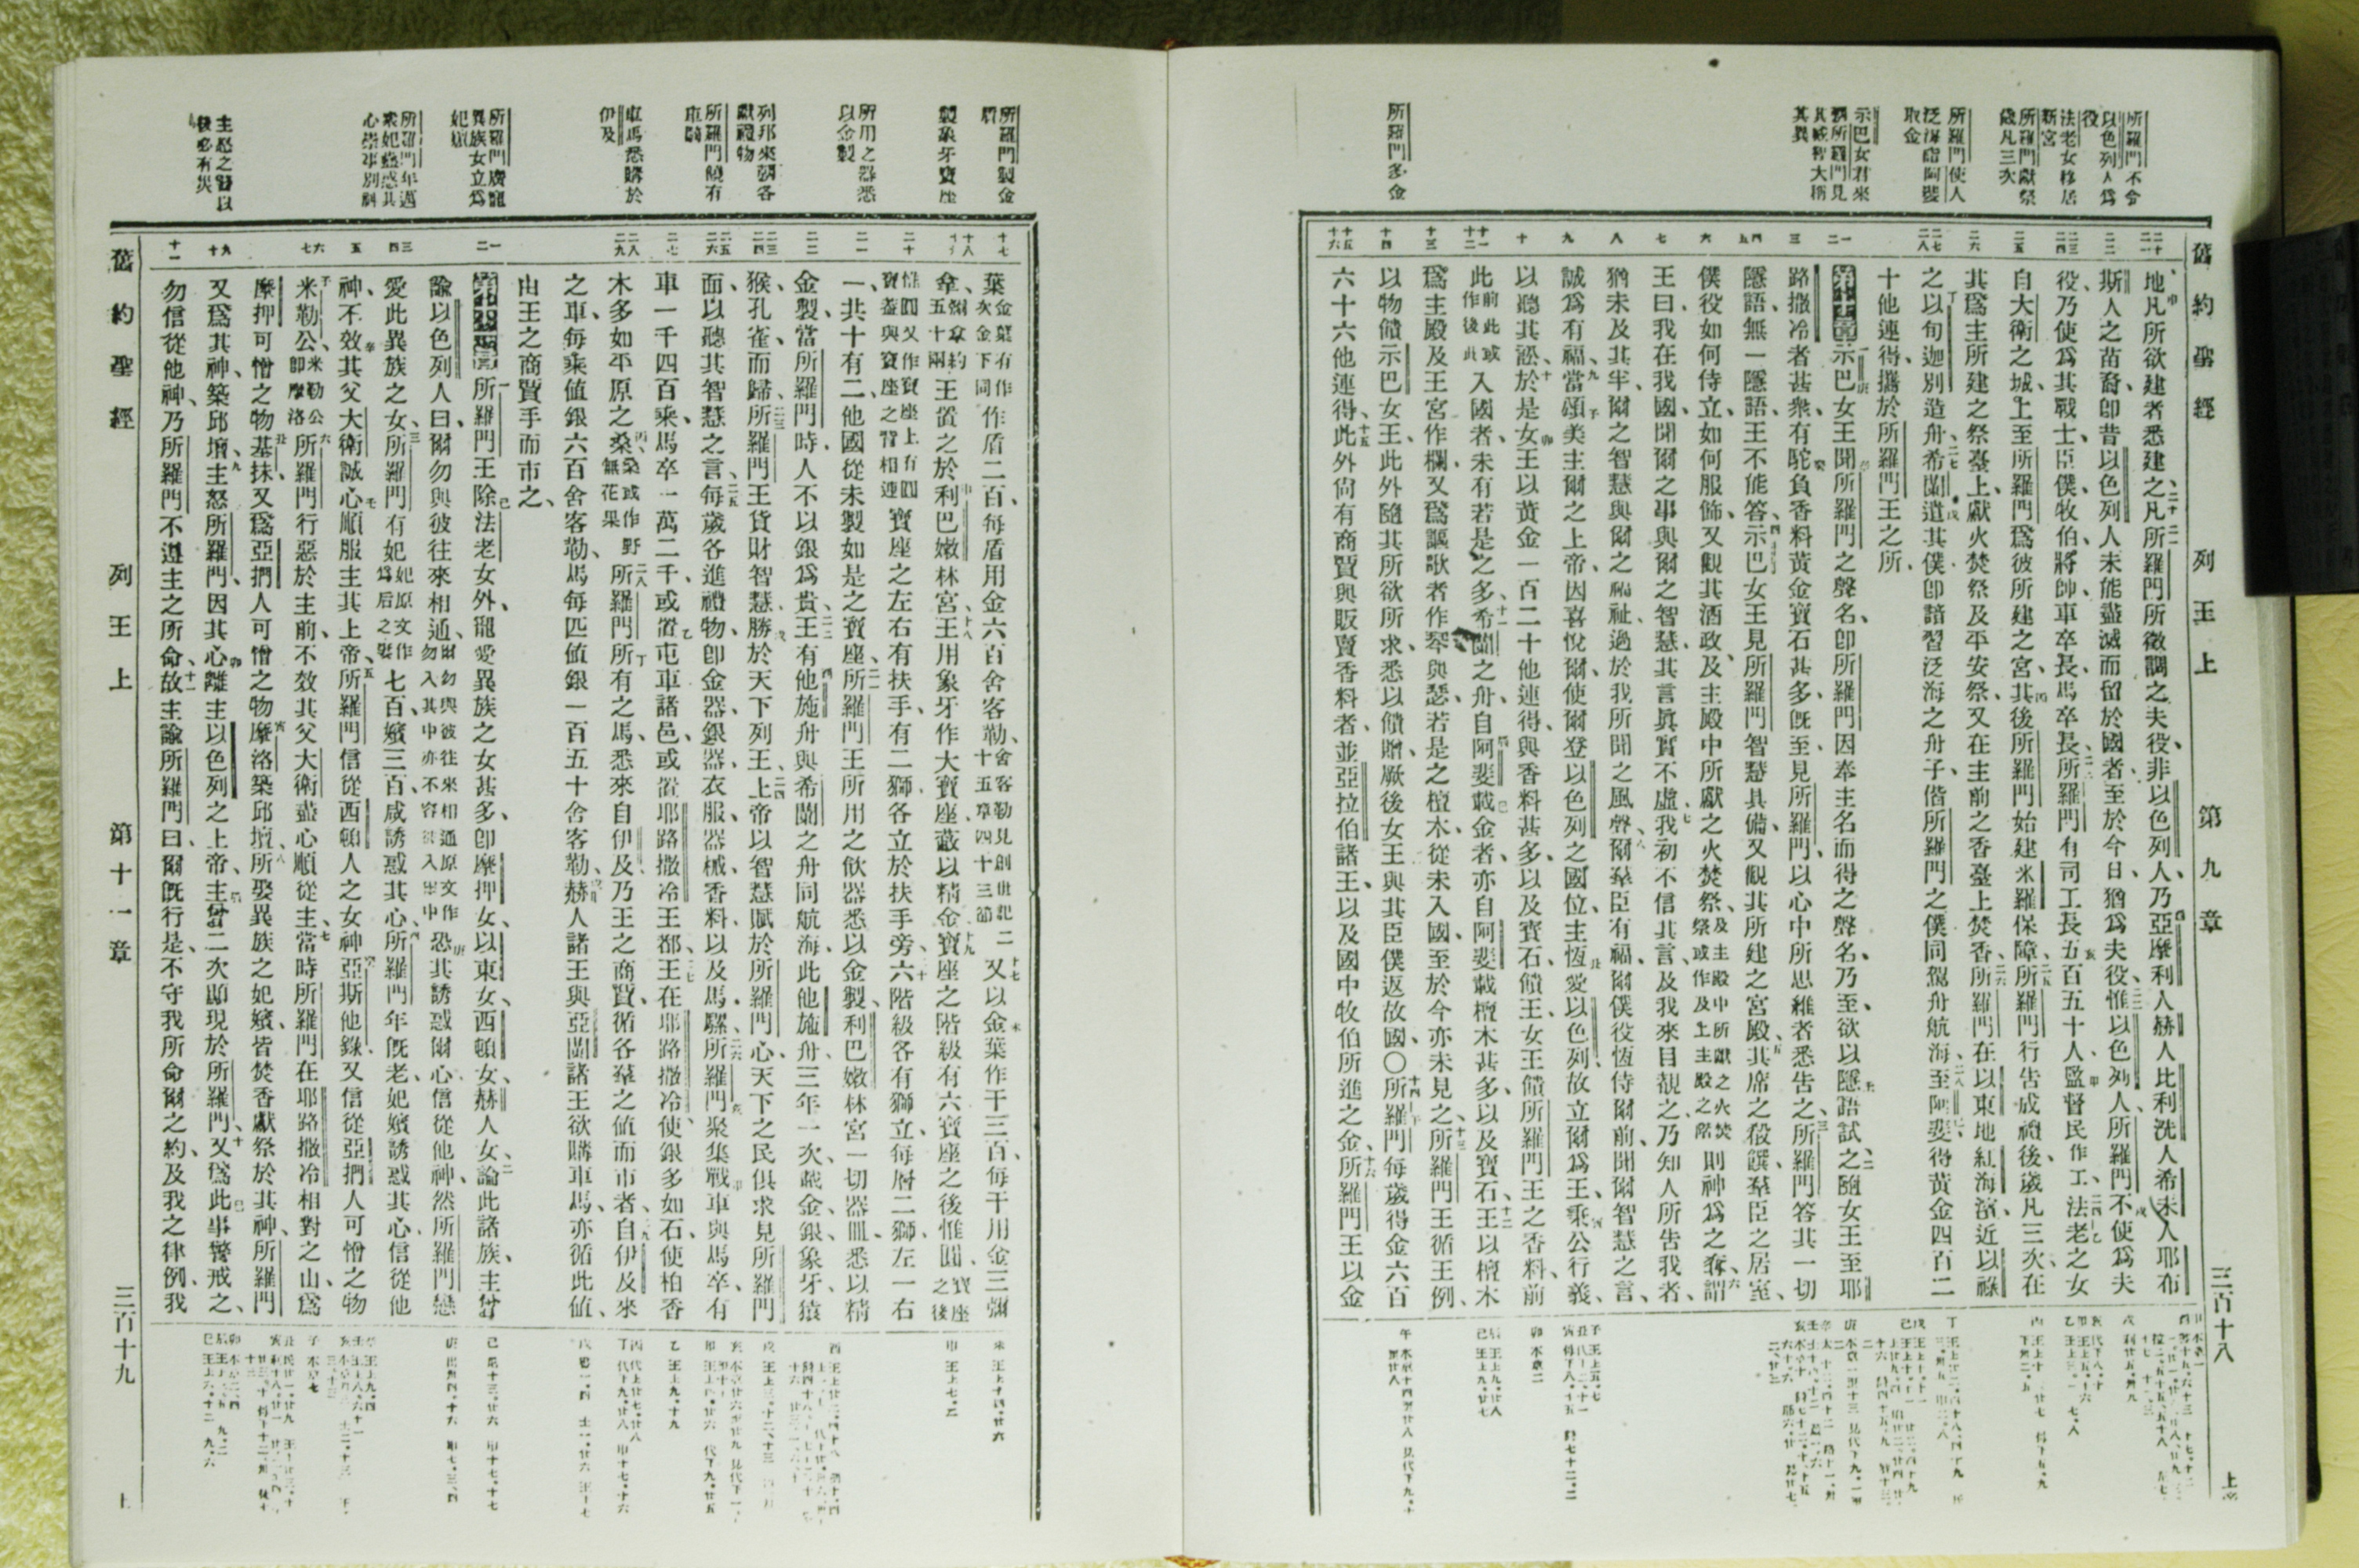 舊約聖經 列王上 第九章 三百十八
所羅門不令
以色列人爲
役
法老女移居
新宮
所羅門獻祭
歲凡三次
所羅門使人
泛海詣阿斐
取金
示巴女君來
謁所羅門見
其威榮大稱
其異
所羅門多金
地凡所欲建者悉建之凡所羅門所徵調之夫役非以色列人乃亞摩利人赫人比利洗人希未人耶布
斯人之苗裔卽昔以色列人未能盡滅而留於國者至於今日猶爲夫役惟以色列人所羅門不使爲夫
役乃使爲其戰士臣僕牧伯將帥車卒長馬卒長所羅門有司工長五百五十人監督民作工法老之女
自大衛之城上至所羅門爲彼所建之宮其後所羅門始建米羅保障所羅門行吿成禮後歲凡三次在
其爲主所建之祭臺上獻火焚祭及平安祭又在主前之香臺上焚香所羅門在以東地紅海濱近以祿
之以旬迦別造舟希蘭遣其僕卽諳習泛海之舟子偕所羅門之僕同駕舟航海至阿斐得黃金四百二
十他連得攜於所羅門王之所
第十章 示巴女王聞所羅門之聲名卽所羅門因奉主名而得之聲名乃至欲以隱語試之隨女王至耶
路撒冷者甚衆有駝負香料黃金寶石甚多旣至見所羅門以心中所思維者悉吿之所羅門答其一切
隱語無一隱語王不能答示巴女王見所羅門智慧具備又觀其所建之宮殿其席之殽饌羣臣之居室
僕役如何侍立如何服飾又觀其酒政及主殿中所獻之火焚祭及主殿中所獻之火焚祭或作及上主殿之階則神爲之奪謂
王曰我在我國聞爾之事與爾之智慧其言眞實不虛我初不信其言及我來目覩之乃知人所吿我者
猶未及其半爾之智慧與爾之福祉過於我所聞之風聲爾羣臣有福爾僕役恆侍爾前聞爾智慧之言
誠爲有福當頌美主爾之上帝因喜悅爾使爾登以色列之國位主恆愛以色列故立爾爲王秉公行義
以聽其訟於是女王以黃金一百二十他連得與香料甚多以及寶石饋王女王饋所羅門王之香料前
此前此或作後此入國者未有若是之多希蘭之舟自阿斐載金者亦自阿斐載檀木甚多以及寶石王以檀木
爲主殿及王宮作欄又爲謳歌者作琴與瑟若是之檀木從未入國至於今亦未見之所羅門王循王例
以物饋示巴女王此外隨其所欲所求悉以饋贈厥後女王與其臣僕返故國〇所羅門每歲得金六百
六十六他連得此外尙有商賈與販賣香料者並亞拉伯諸王以及國中牧伯所進之金所羅門王以金
所羅門製金
盾
製象牙寶座
所用之器悉
以金製
列邦來朝各
獻禮物
所羅門饒有
車騎
車馬悉購於
伊及
所羅門廣寵
異族女立爲
妃嬪
所羅門年邁
衆妃蠱惑其
心崇事別神
主怒之警以
後必有災
葉金葉有作次金下同作盾二百每盾用金六百舍客勒舍客勒見創世記二十五章四十三節又以金葉作干三百每干用金三彌
拿彌拿約五十兩王置之於利巴嫩林宮王用象牙作大寶座蔽以精金寶座之階級有六寶座之後惟圓寶座之後
惟圓又作寶座上有圓寶蓋與寶座之背相連寶座之左右有扶手有二獅各立於扶手旁六階級各有獅立每層二獅左一右
一共十有二他國從未製如是之寶座所羅門王所用之飮器悉以金製利巴嫩林宮一切器皿悉以精
金製當所羅門時人不以銀爲貴王有他施舟與希蘭之舟同航海此他施舟三年一次載金銀象牙猿
猴孔雀而歸所羅門王貨財智慧勝於天下列王上帝以智慧賦於所羅門心天下之民俱求見所羅門
面以聽其智慧之言每歲各進禮物卽金器銀器衣服器械香料以及馬騾所羅門聚集戰車與馬卒有
車一千四百乘馬卒一萬二千或置屯車諸邑或置耶路撒冷王都王在耶路撒冷使銀多如石使柏香
木多如平原之桑桑或作野無花果所羅門所有之馬悉來自伊及乃王之商賈循各羣之値而市者自伊及來
之車每乘値銀六百舍客勒馬每匹値銀一百五十舍客勒赫人諸王與亞蘭諸王欲購車馬亦循此値
由王之商賈手而市之
第十一章 所羅門王除法老女外寵愛異族之女甚多卽摩押女以東女西頓女赫人女論此諸族主曾
諭以色列人曰爾勿與彼往來相通爾勿與彼往來相通原文作勿入其中亦不容彼入爾中恐其誘惑爾心信從他神然所羅門戀
愛此異族之女所羅門有妃妃原文作爲后之妻七百嬪三百咸誘惑其心所羅門年旣老妃嬪誘惑其心信從他
神不效其父大衛誠心順服主其上帝所羅門信從西頓人之女神亞斯他錄又信從亞捫人可憎之物
米勒公米勒公卽摩洛所羅門行惡於主前不效其父大衛盡心順從主當時所羅門在耶路撒冷相對之山爲
摩押可憎之物基抹又爲亞捫人可憎之物摩洛築邱壇所娶異族之妃嬪皆焚香獻祭於其神所羅門
又爲其神築邱壇主怒所羅門因其心離主以色列之上帝主曾二次顯現於所羅門又爲此事警戒之
勿信從他神乃所羅門不遵主之所命故主諭所羅門曰爾旣行是不守我所命爾之約及我之律例我
舊約聖經 列王上 第十一章 三百十九